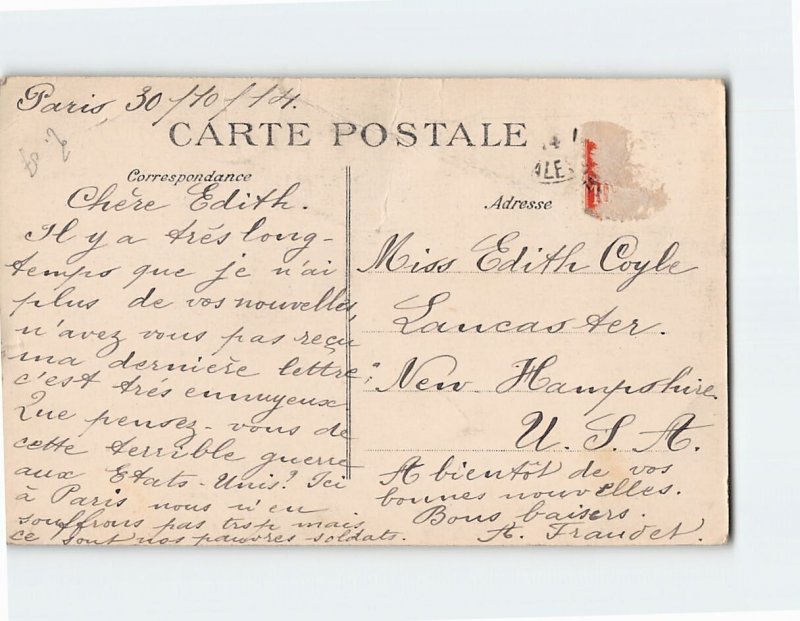 Paris, 30/10/14.
CARTE POSTALE
Correspondance
Chère Edith.
Il y a très long-
temps que je n'ai
plus de vos nouvelles,
n'avez vous pas reçu
ma dernière lettre?
c'est très ennuyeux.
Que pensez-vous de
cette terrible guerre
aux Etats-Unis? Ici
à Paris nous n'en
souffrons pas trop mais
ce sont nos pauvres soldats.
Adresse
Miss Edith Coyle
Lancaster.
New Hampshire
U. S. A.
A bientôt de vos
bonnes nouvelles.
Bons baisers.
A. Fraudet.